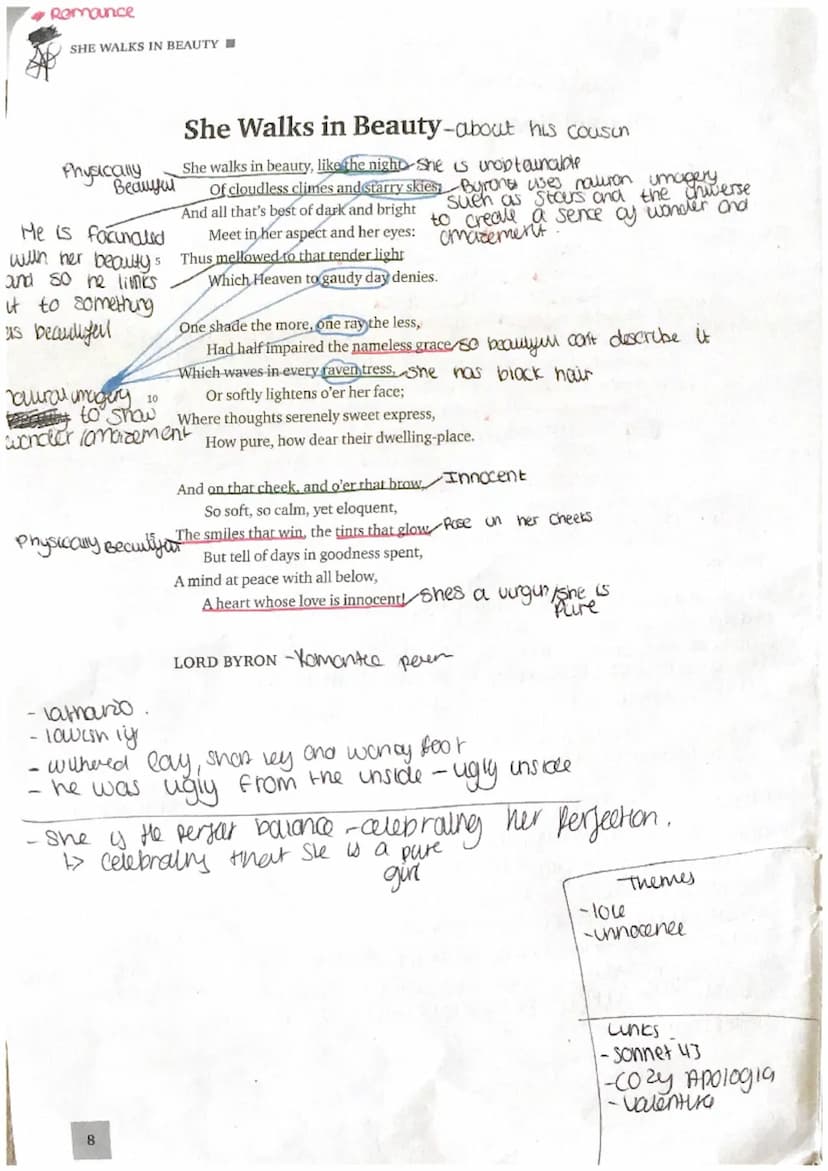 Romance
SHE WALKS IN BEAUTY
She Walks in Beauty - about his cousin
Physically
Beautiful
She walks in beauty, like the night - she is unobtainable
Of cloudless climes and starry skies;
And all that's best of dark and bright
Meet in her aspect and her eyes:
Thus mellowed to that tender light
Which Heaven to gaudy day denies.
Byron uses natural imagery
such as stars and the universe
to create a sence of wonder and
amazement.
He is
with her beauty
and so he links
it to something
as beautiful
One shade the more, one ray the less,
Had half impaired the nameless grace so beautyful cant describe it
Which waves in every raven tress, she has black hair
10 Or softly lightens o'er her face;
Where thoughts serenely sweet express,
How pure, how dear their dwelling-place.
natural imagery
to show
wonder /amazement
And on that cheek, and o'er that brow, Innocent
So soft, so calm, yet eloquent,
The smiles that win, the tints that glow, Rose on her cheeks
But tell of days in goodness spent,
A mind at peace with all below,
A heart whose love is innocent! shes a virgin/she is
Pure
Physically Beautiful
LORD BYRON - Romantic
- withered leg, short leg and foot
- he was ugly from the inside - ugly inside
- She is the perfect balance - celebrating her perfection.
↳ celebrating that she is a pure
girl
Themes
- love
- innocence
Links
- sonnet 43
- COZY APOLOGIA
- valentine
8